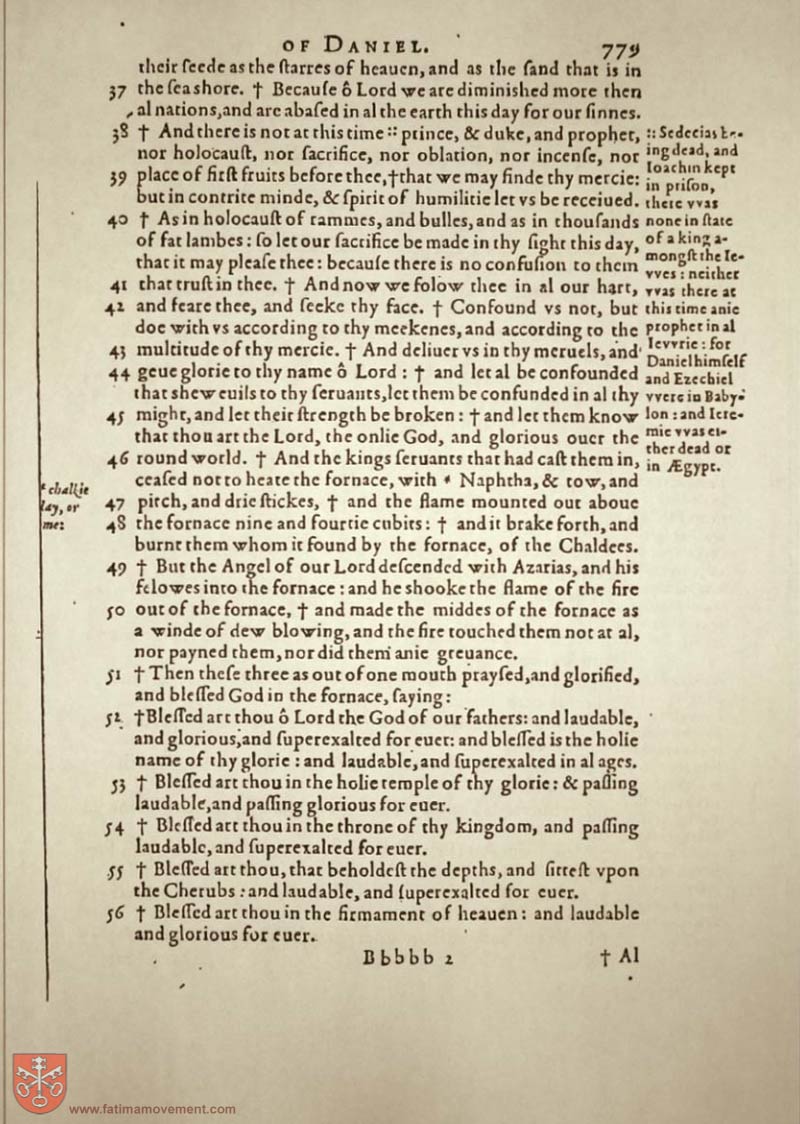 OF DANIEL. 779
their ſeede as the ſtarres of heauen, and as the ſand that is in
37 the ſea shore. † Becauſe ô Lord we are diminished more then
al nations, and are abaſed in al the earth this day for our ſinnes.
38 † And there is not at this time :: prince, & duke, and prophet,
nor holocauſt, nor ſacrifice, nor oblation, nor incenſe, nor
39 place of firſt fruits before thee, † that we may finde thy mercie:
but in contrite minde, & ſpirit of humilitie let vs be receiued.
40 † As in holocauſt of rammes, and bulles, and as in thouſands
of fat lambes : ſo let our ſacrifice be made in thy ſight this day,
that it may pleaſe thee : becauſe there is no confuſion to them
41 that truſt in thee. † And now we folow thee in al our hart,
42 and feare thee, and ſeeke thy face. † Confound vs not, but
doe with vs according to thy meekenes, and according to the
43 multitude of thy mercie. † And deliuer vs in thy meruels, and
44 geue glorie to thy name ô Lord : † and let al be confounded
that shew euils to thy ſeruants, let them be confunded in al thy
45 might, and let their ſtrength be broken : † and let them know
that thou art the Lord, the onlie God, and glorious ouer the
46 round world. † And the kings ſeruants that had caſt them in,
ceaſed not to heate the fornace, with Naphtha, & tow, and
47 pitch, and drie ſtickes, † and the flame mounted out aboue
48 the fornace nine and fourtie cubits : † and it brake forth, and
burnt them whom it found by the fornace, of the Chaldees.
49 † But the Angel of our Lord deſcended with Azarias, and his
felowes into the fornace : and he shooke the flame of the fire
50 out of the fornace, † and made the middes of the fornace as
a winde of dew blowing, and the fire touched them not at al,
nor payned them, nor did them anie greuance.
51 † Then theſe three as out of one mouth prayſed, and glorified,
and bleſſed God in the fornace, ſaying :
52 † Bleſſed art thou ô Lord the God of our fathers: and laudable,
and glorious, and ſuperexalted for euer: and bleſſed is the holie
name of thy glorie : and laudable, and ſuperexalted in al ages.
53 † Bleſſed art thou in the holie temple of thy glorie : & paſſing
laudable, and paſſing glorious for euer.
54 † Bleſſed art thou in the throne of thy kingdom, and paſſing
laudable, and ſuperexalted for euer.
55 † Bleſſed art thou, that beholdeſt the depths, and ſitteſt vpon
the Cherubs : and laudable, and ſuperexalted for euer.
56 † Bleſſed art thou in the firmament of heauen : and laudable
and glorious for euer.
Bbbbb 2 † Al
:: Sedecias be-
ing dead, and
Ioachin kept
in priſon,
there vvas
none in ſtate
of a king a-
mongſt the Ie-
vves : neither
vvas there at
this time anie
prophet in al
Ievvrie : for
Daniel himſelf
and Ezechiel
vvere in Baby-
lon : and Iere-
mie vvas ei-
ther dead or
in Ægypt.
chalkie
lay, or
me:
www.fatimamovement.com